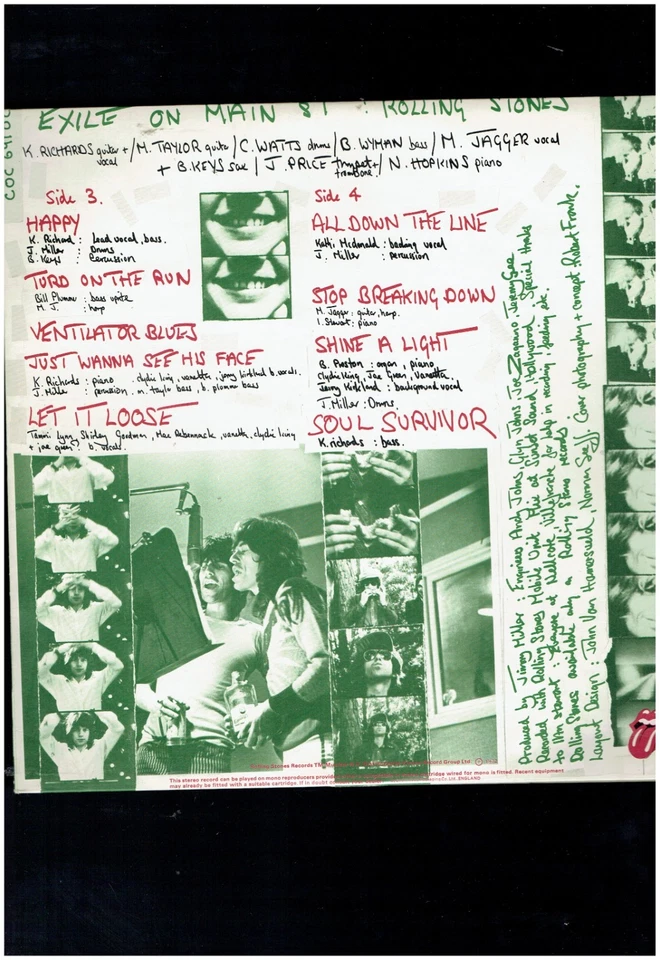 EXILE ON MAIN ST : ROLLING STONES
K. RICHARDS guitar + vocal / M. TAYLOR guitar / C. WATTS drums / B. WYMAN bass / M. JAGGER vocal
+ B. KEYS sax / J. PRICE trumpet + trombone / N. HOPKINS piano
Side 3.
HAPPY
K. Richard : Lead vocal, bass.
J. Miller : Drums
B. Keys : Percussion
TURD ON THE RUN
Bill Plummer : bass uprite
M. J. : harp
VENTILATOR BLUES
JUST WANNA SEE HIS FACE
K. Richards : piano . clydie king, vanetta, jerry kirkland b. vocals.
J. Miller : percussion . m. taylor bass, b. plummer bass
LET IT LOOSE
Tammi Lynn, Shirley Goodman, Mac Rebennack, vanetta, clydie king
+ joe green : b. vocals.
Side 4
ALL DOWN THE LINE
Kathi Mcdonald : backing vocal
J. Miller : percussion
STOP BREAKING DOWN
M. Jagger : guitar, harp.
I. Stewart : piano
SHINE A LIGHT
B. Preston : organ, piano
Clydie King, Joe Green, Vanetta,
Jerry Kirkland : background vocal
J. Miller : Drums.
SOUL SURVIVOR
K. richards : bass.
Produced by Jimmy Miller : Engineers Andy Johns, Glyn Johns, Joe Zagarino, Jeremy Gee
Recorded with Rolling Stones Mobile Unit + Mix at Sunset Sound, Hollywood. Special thanks
to Ian Stewart : Everyone at Nellcote Villefranche for help in recording, feeding etc.
Rolling Stones available only on Rolling Stones records
Layout Design : John Van Hamersveld, Norman Seeff. Cover photography + concept Robert Frank.
This stereo record can be played on mono reproducers
cartridge wired for mono is fitted. Recent equipment
may already be fitted with a suitable cartridge. If in doubt
ENGLAND